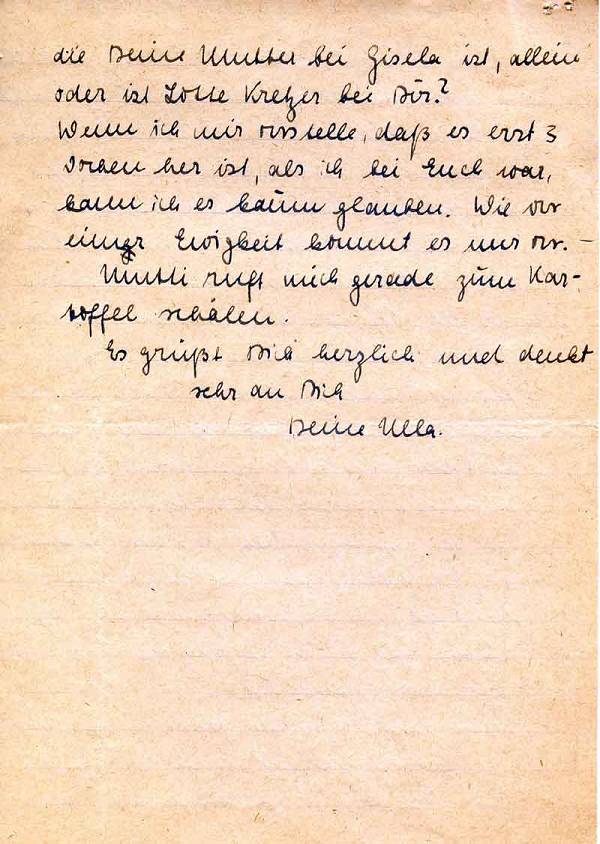 die Deine Mutter bei Gisela ist, allein
oder ist Lotte Kretzer bei Dir?
Wenn ich mir vorstelle, daß es erst 3
Wochen her ist, als ich bei Euch war,
kann ich es kaum glauben. Wie vor
einer Ewigkeit kommt es mir vor. –
Mutti ruft mich gerade zum Kar-
toffel schälen.
Es grüßt Dich herzlich und denkt
sehr an Dich
Deine Ulla.